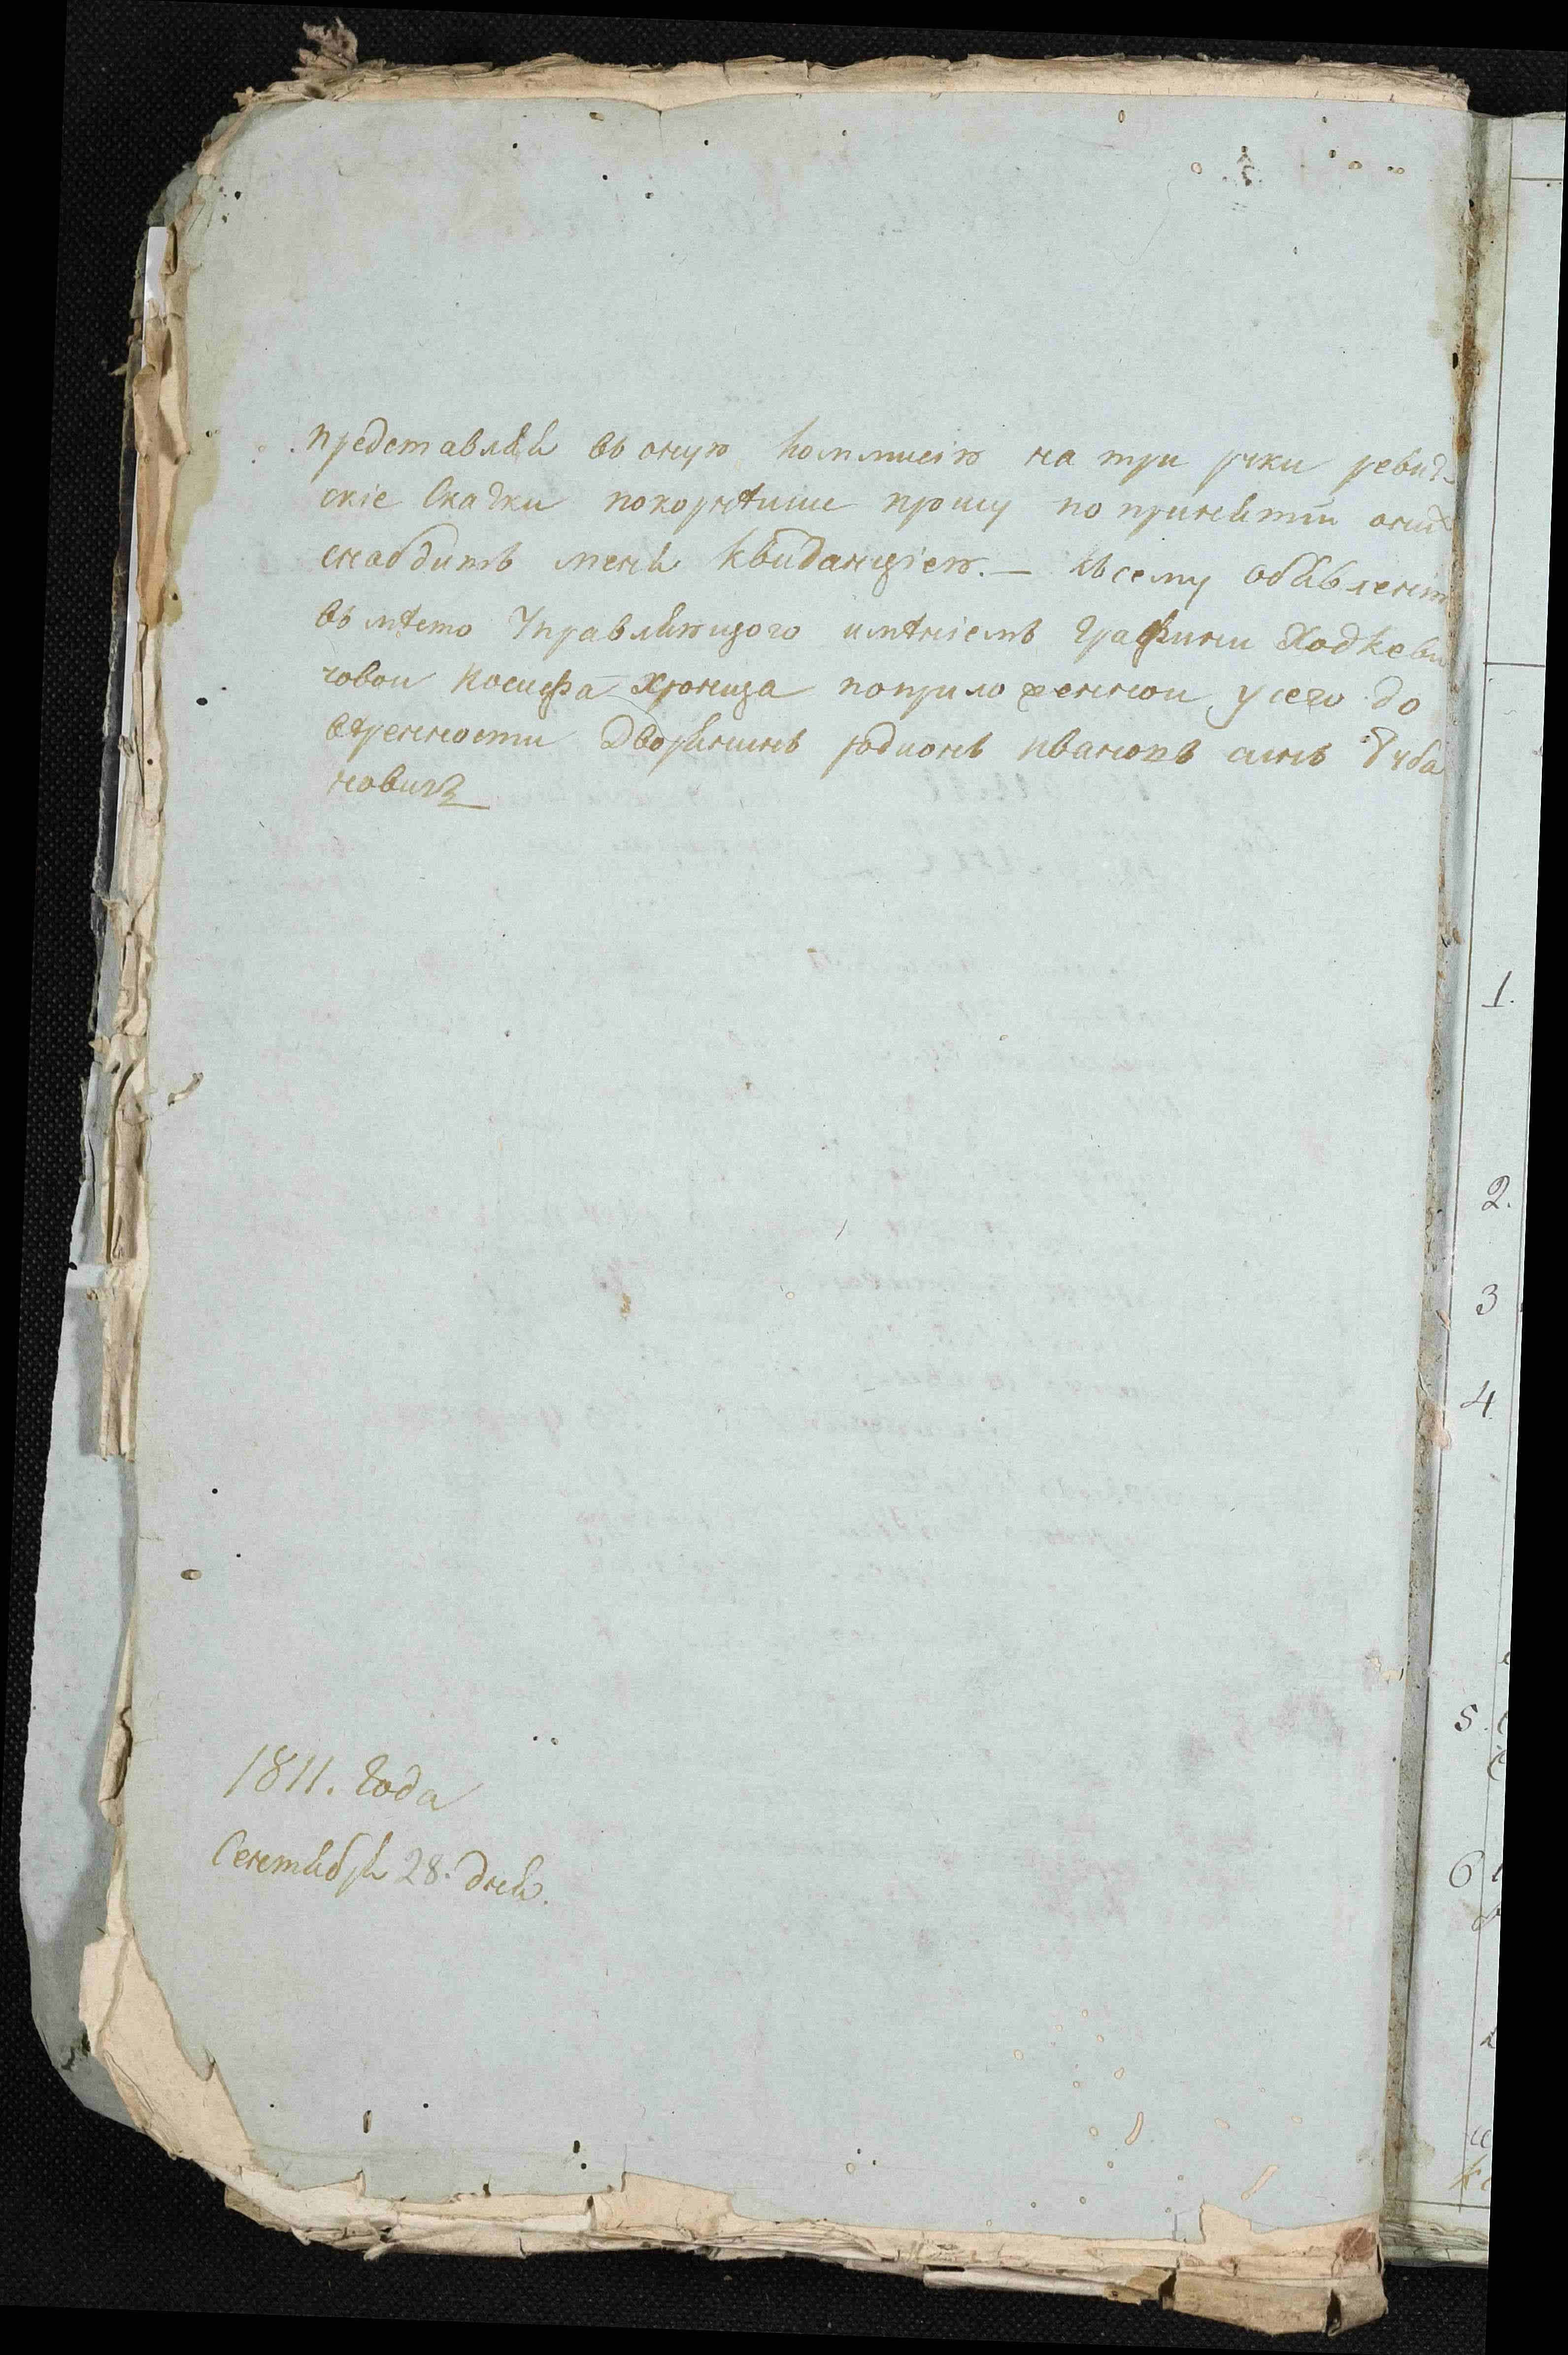 представляя въ оную коммисію на три руки ревиз-
скіе Сказки покорнѣише прошу по принятіи оних
снабдить меня Квиданціею. — Къ сему объявленію
въ мѣсто Управляющого имѣніемъ Графини Ходкеви
човои Иосифа Хронща поприложенной у сего до
вѣренности Дворянинъ родионъ ивановъ сынъ
новичъ
1811. Года
Сентября 28. дня.
1.
2.
3
4
5.
6